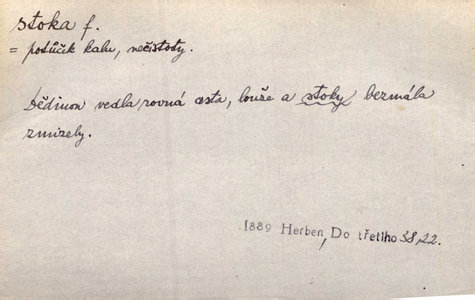 stoka f.
= potůčik kalu, nečistoty.
Dědinou vedla rovná cesta, louže a stoky bezmála
zmizely.
1889 Herben, Do třetího 38, 22.